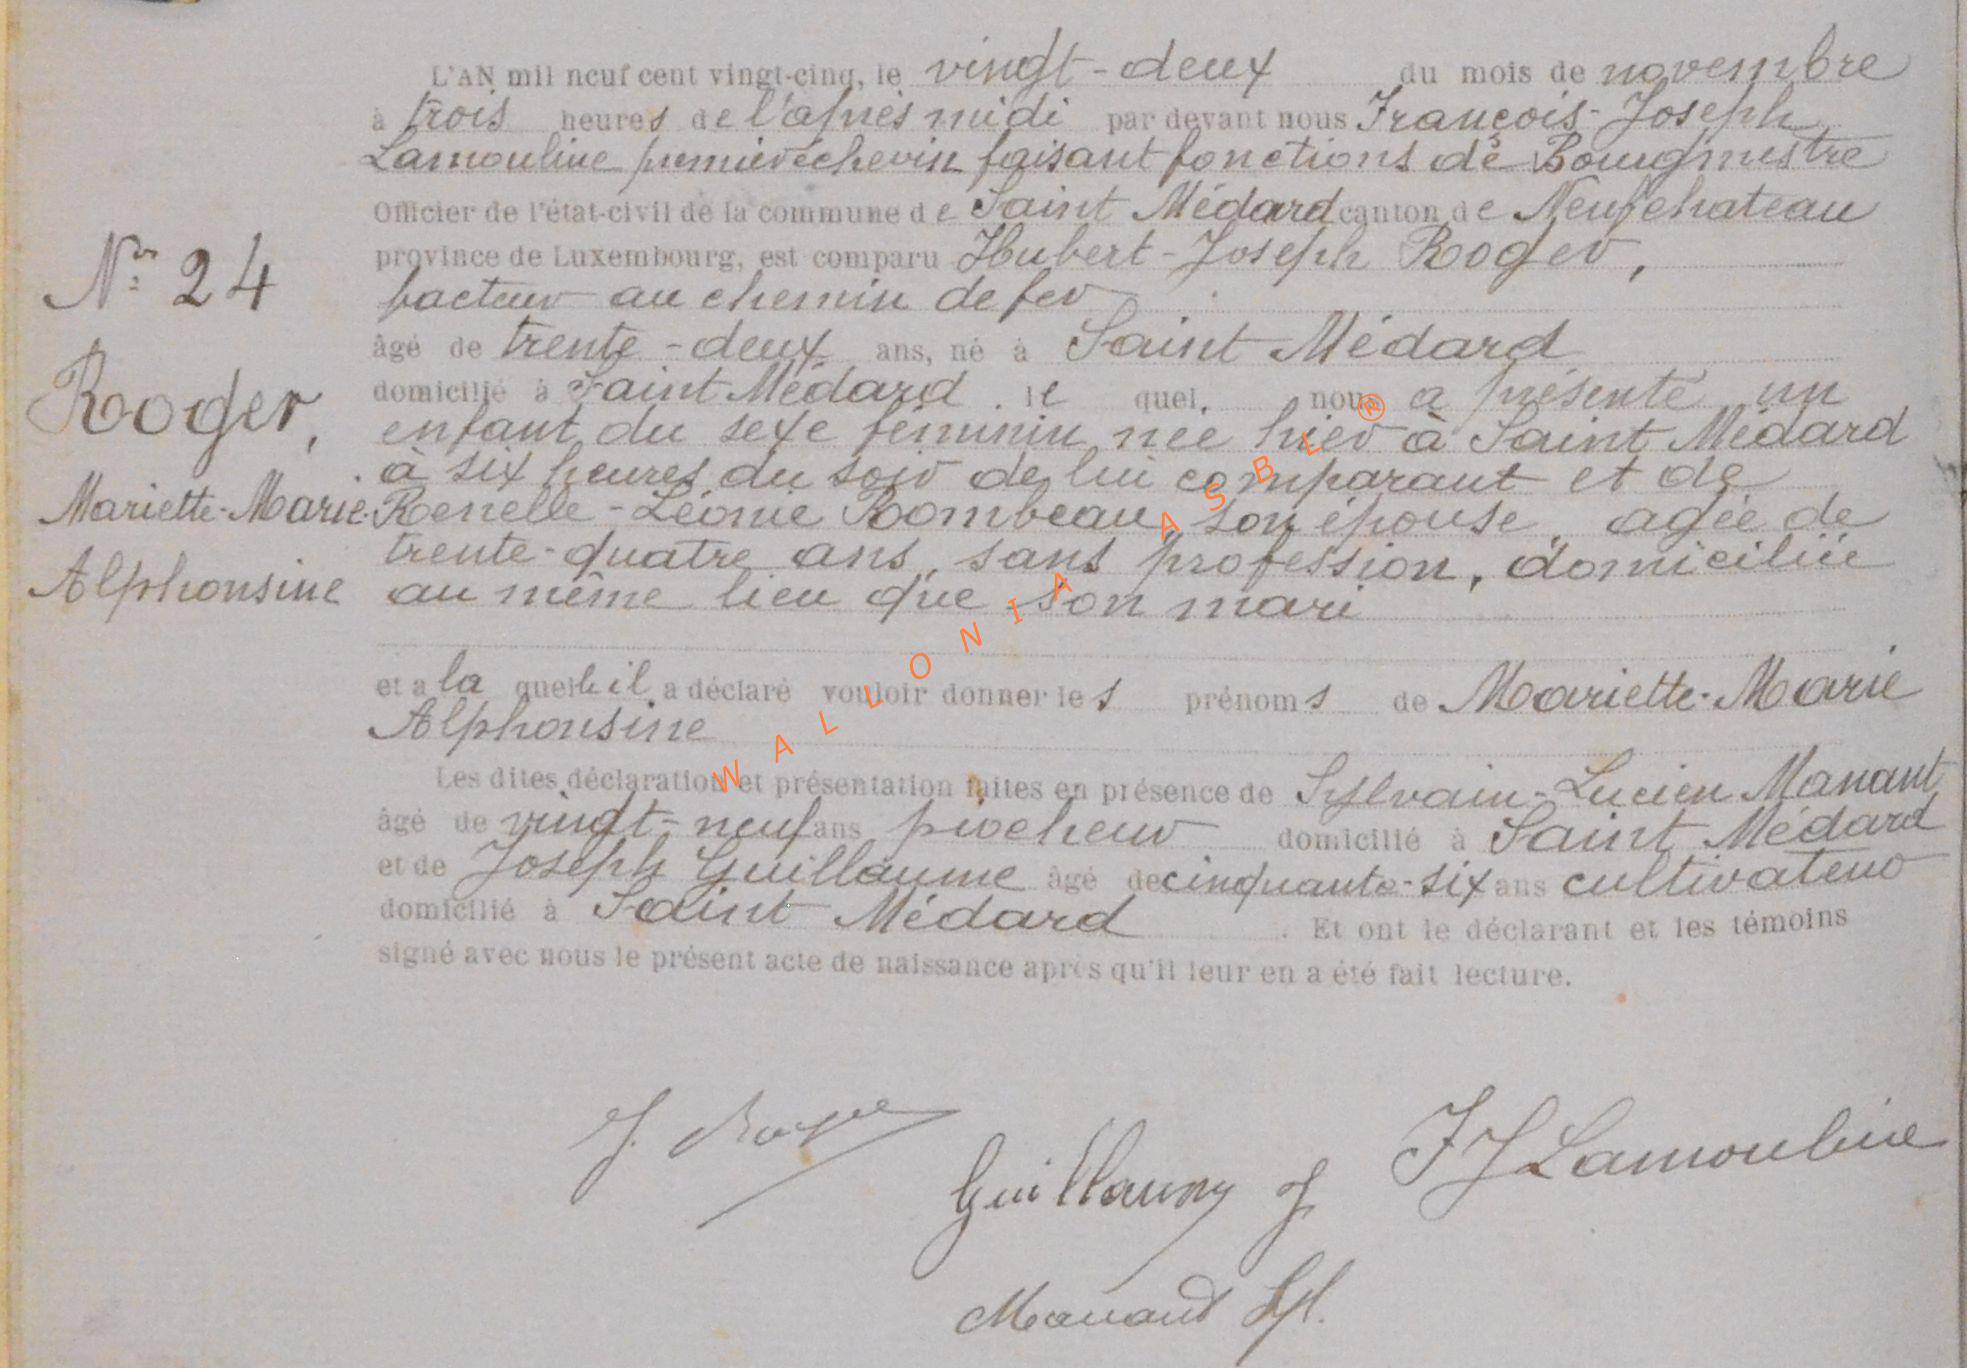 L'AN mil neuf cent vingt-cinq, le vingt-deux du mois de novembre
à trois heures de l'après midi par devant nous François-Joseph
Lamouline premier échevin faisant fonctions de Bourgmestre
Officier de l'état-civil de la commune de Saint Médard canton de Neufchateau
province de Luxembourg, est comparu Hubert-Joseph Roger,
facteur au chemin de fer
âgé de trente-deux ans, né à Saint Médard
domicilié à Saint Médard. lequel, nous a présenté un
enfant du sexe féminin née hier à Saint Médard
à six heures du soir de lui comparant et de
Renelle-Léonie Rombeau, son épouse, agée de
trente-quatre ans, sans profession, domiciliée
au même lieu que son mari
Nº 24
Roger,
Mariette-Marie-
Alphonsine
et a la quelle il a déclaré vouloir donner les prénoms de Mariette-Marie
Alphonsine
Les dites déclaration et présentation faites en présence de Sylvain-Lucien Manant
âgé de vingt-neuf ans piocheur domicilié à Saint Médard
et de Joseph Guillaume âgé de cinquante-six ans cultivateur
domicilié à Saint Médard. Et ont le déclarant et les témoins
signé avec nous le présent acte de naissance après qu'il leur en a été fait lecture.
WALLONIA ASBL®
J. Roger
Guillaume J
FJ Lamouline
Manant Syl.